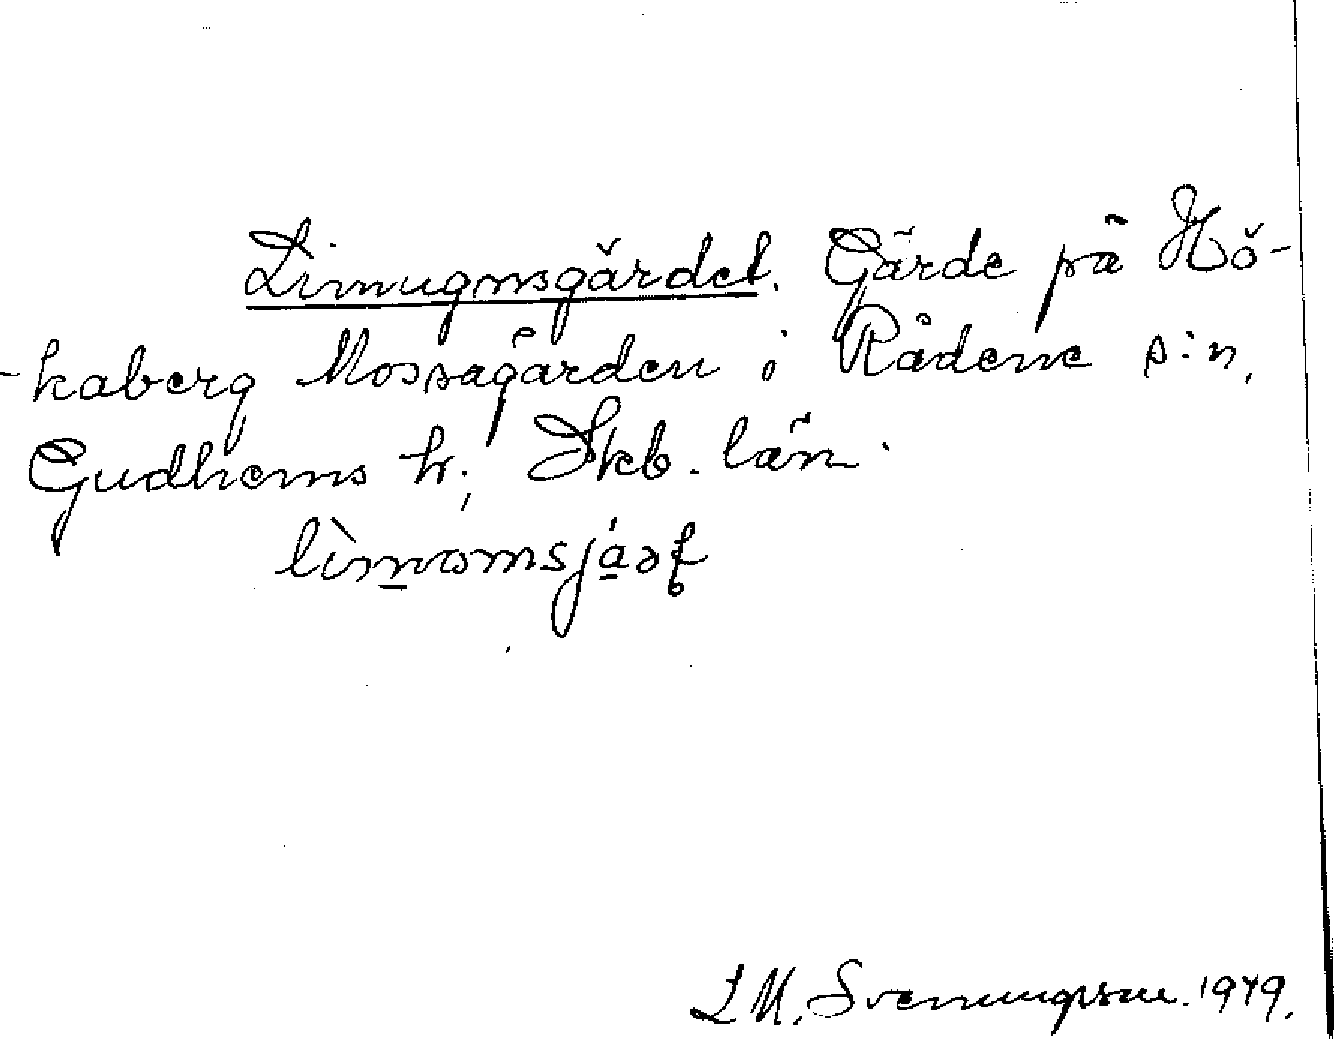 Limugnsgärdet. Gärde på Hö-
-kaberg Mossagården i Rådene s:n,
Gudhems h; Skb. län.
L M. Svenungsson. 1949.